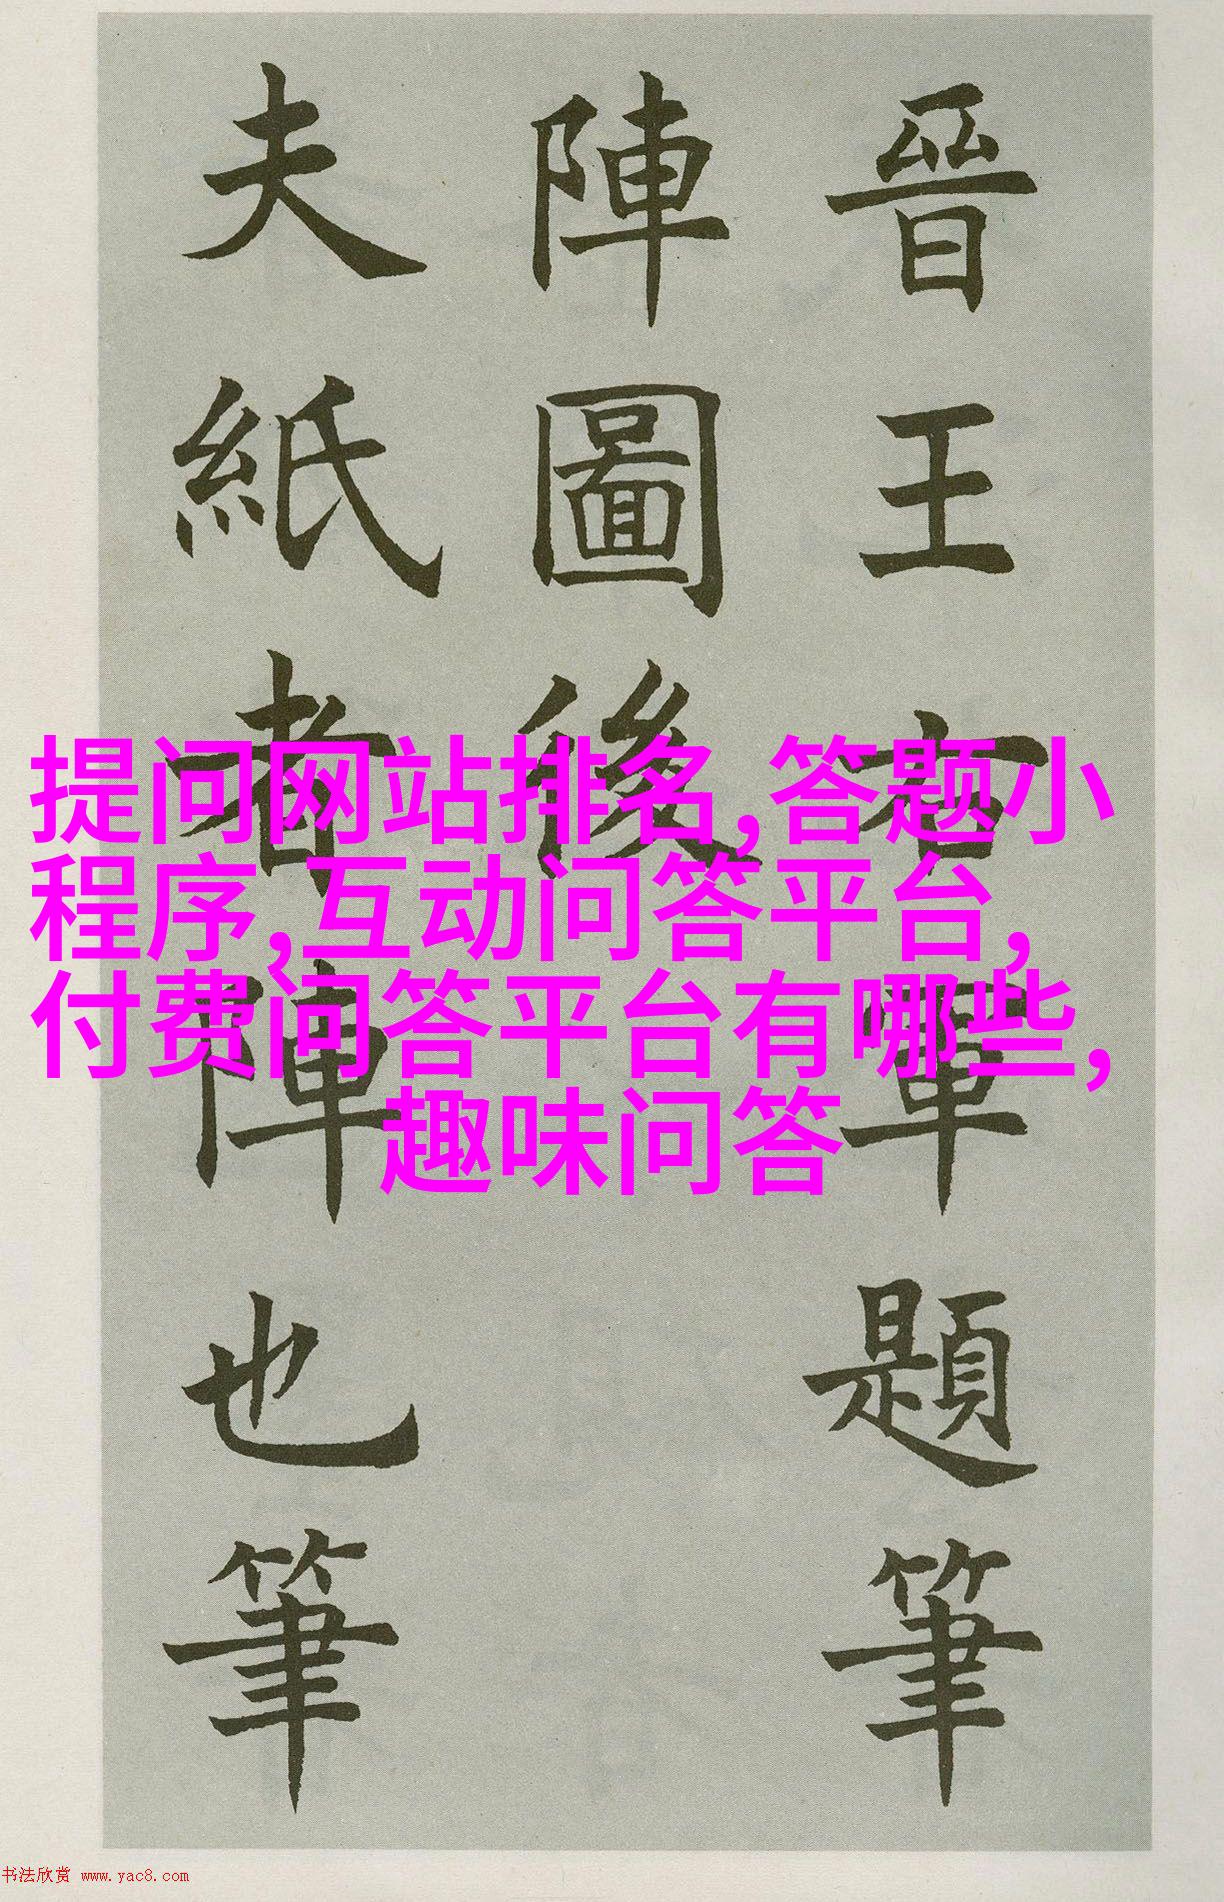 晉王右軍題筆
陣圖後
夫紙者陣也筆
提问网站排名,答题小
程序,互动问答平台,
付费问答平台有哪些,
趣味问答
书法欣赏 www.yac8.com